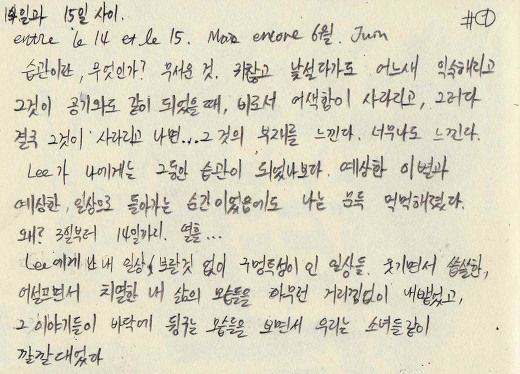 14일과 15일 사이. #①
entre le 14 et le 15. Mais encore 6월. Juin
습관이란, 무엇인가? 무서운 것. 귀찮고 낯설다가도 어느새 익숙해지고
그것이 공기와도 같이 되었을 때, 비로서 어색함이 사라지고, 그러다
결국 그것이 사라지고 나면... 그것의 부재를 느낀다. 너무나도 느낀다.
Lee가 나에게는 그동안 습관이 되었나보다. 예상한 이별과
예상한, 일상으로 돌아가는 순간이었음에도 나는 문득 먹먹해졌다.
왜? 3일부터 14일까지. 열흘...
Lee에게 난 내 일상, 보잘것 없이 구멍투성이인 일상들. 웃기면서 씁쓸한,
어설프면서 치열한 내 삶의 모습들을 아무런 거리낌없이 내뱉었고,
그 이야기들이 바닥에 뒹구는 모습들을 보면서 우리는 소녀들같이
깔깔대었다